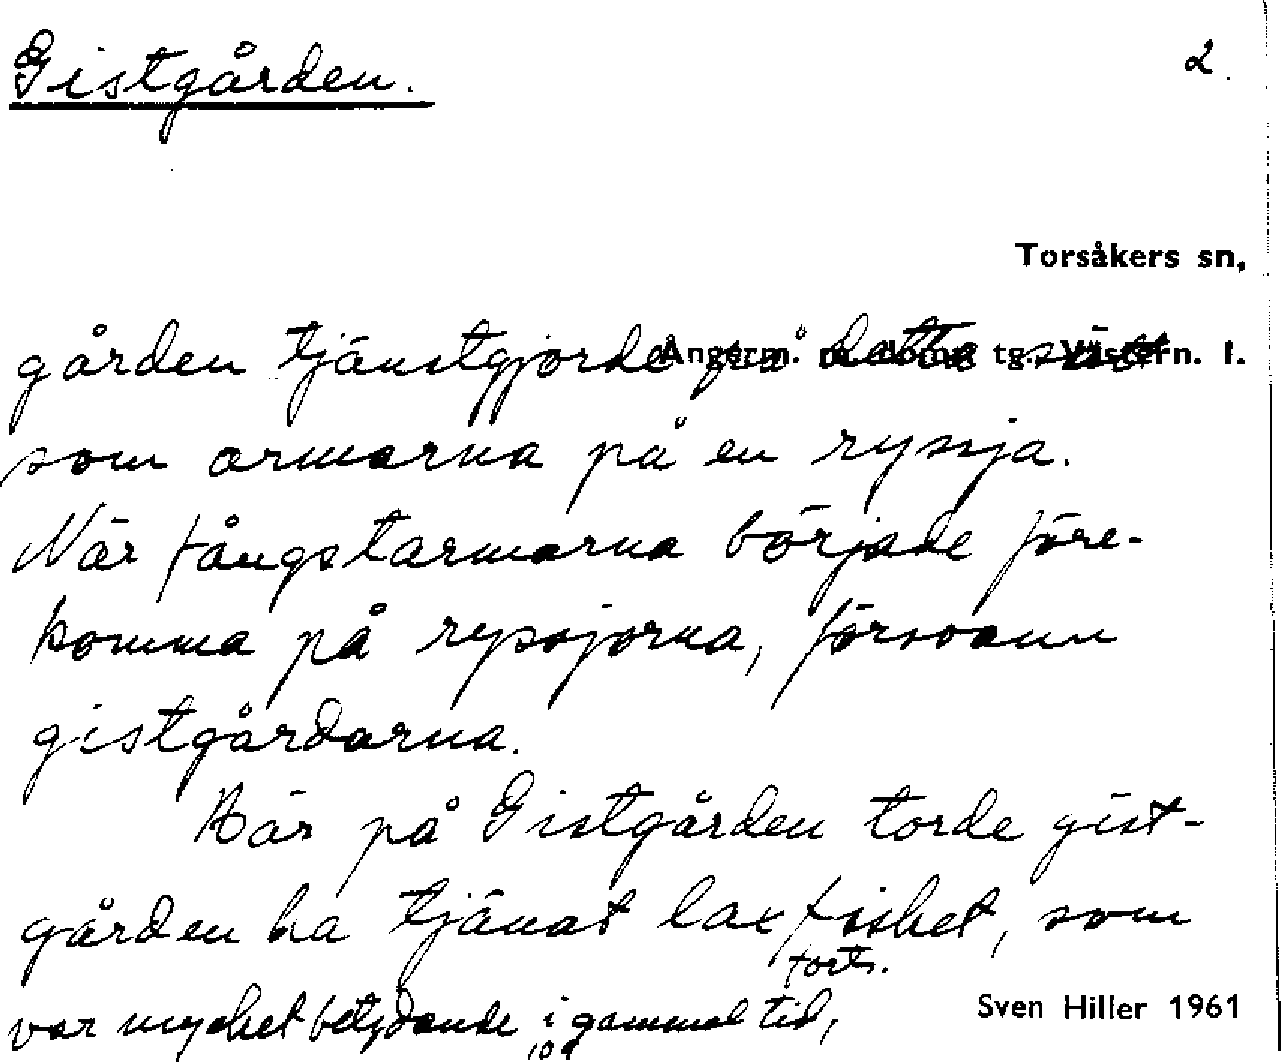 Gistgården. 2.
Torsåkers sn,
Ångerm. m. doms. tg. Västern. l.
gården tjänstgjorde på detta sätt
som armarna på en ryssja.
När fångstarmarna började före-
komma på ryssjorna, försvann
gistgårdarna.
Här på Gistgården torde gist-
gården ha tjänat laxfisket, som
forts.
var mycket betydande i gammal tid,
Sven Hiller 1961